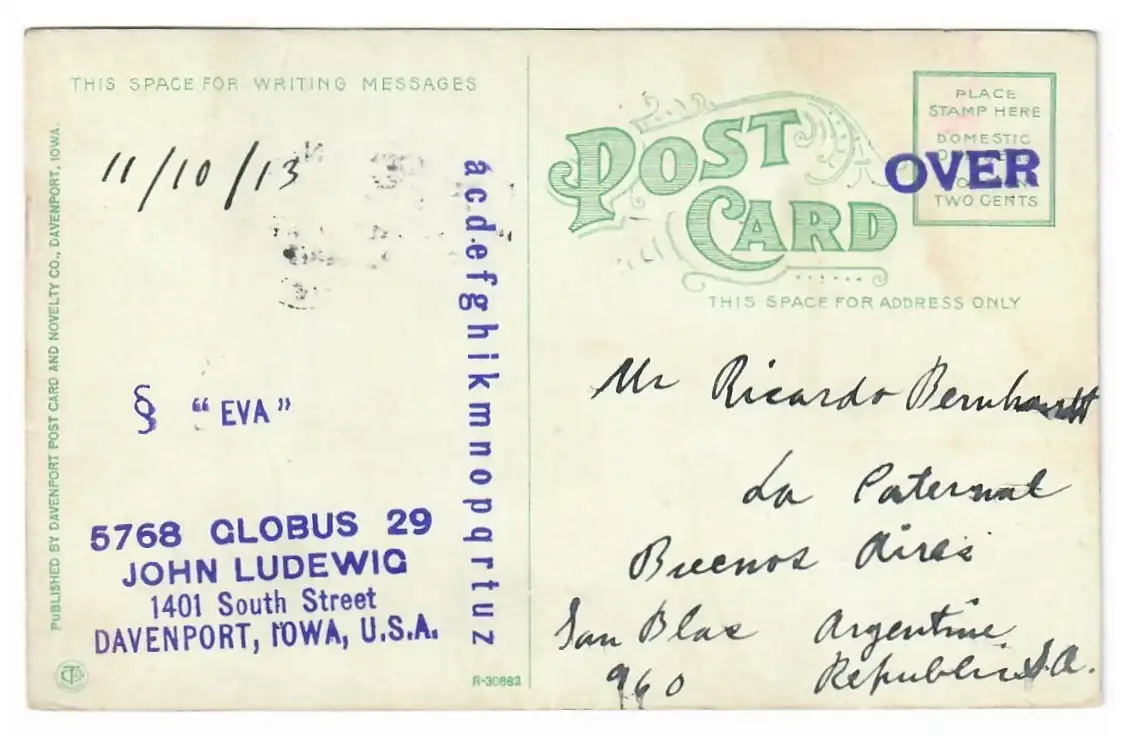 THIS SPACE FOR WRITING MESSAGES
PUBLISHED BY DAVENPORT POST CARD AND NOVELTY CO., DAVENPORT, IOWA.
11/10/13
a c d e f g h i k m n o p q r t u z
§ “EVA”
5768 GLOBUS 29
JOHN LUDEWIG
1401 South Street
DAVENPORT, IOWA, U.S.A.
R-30682
POST
CARD
PLACE
STAMP HERE
DOMESTIC
OVER
TWO CENTS
THIS SPACE FOR ADDRESS ONLY
Mr Ricardo Bernhardt
La Paternal
Buenos Aires
San Blas Argentine
960 Republic S.A.